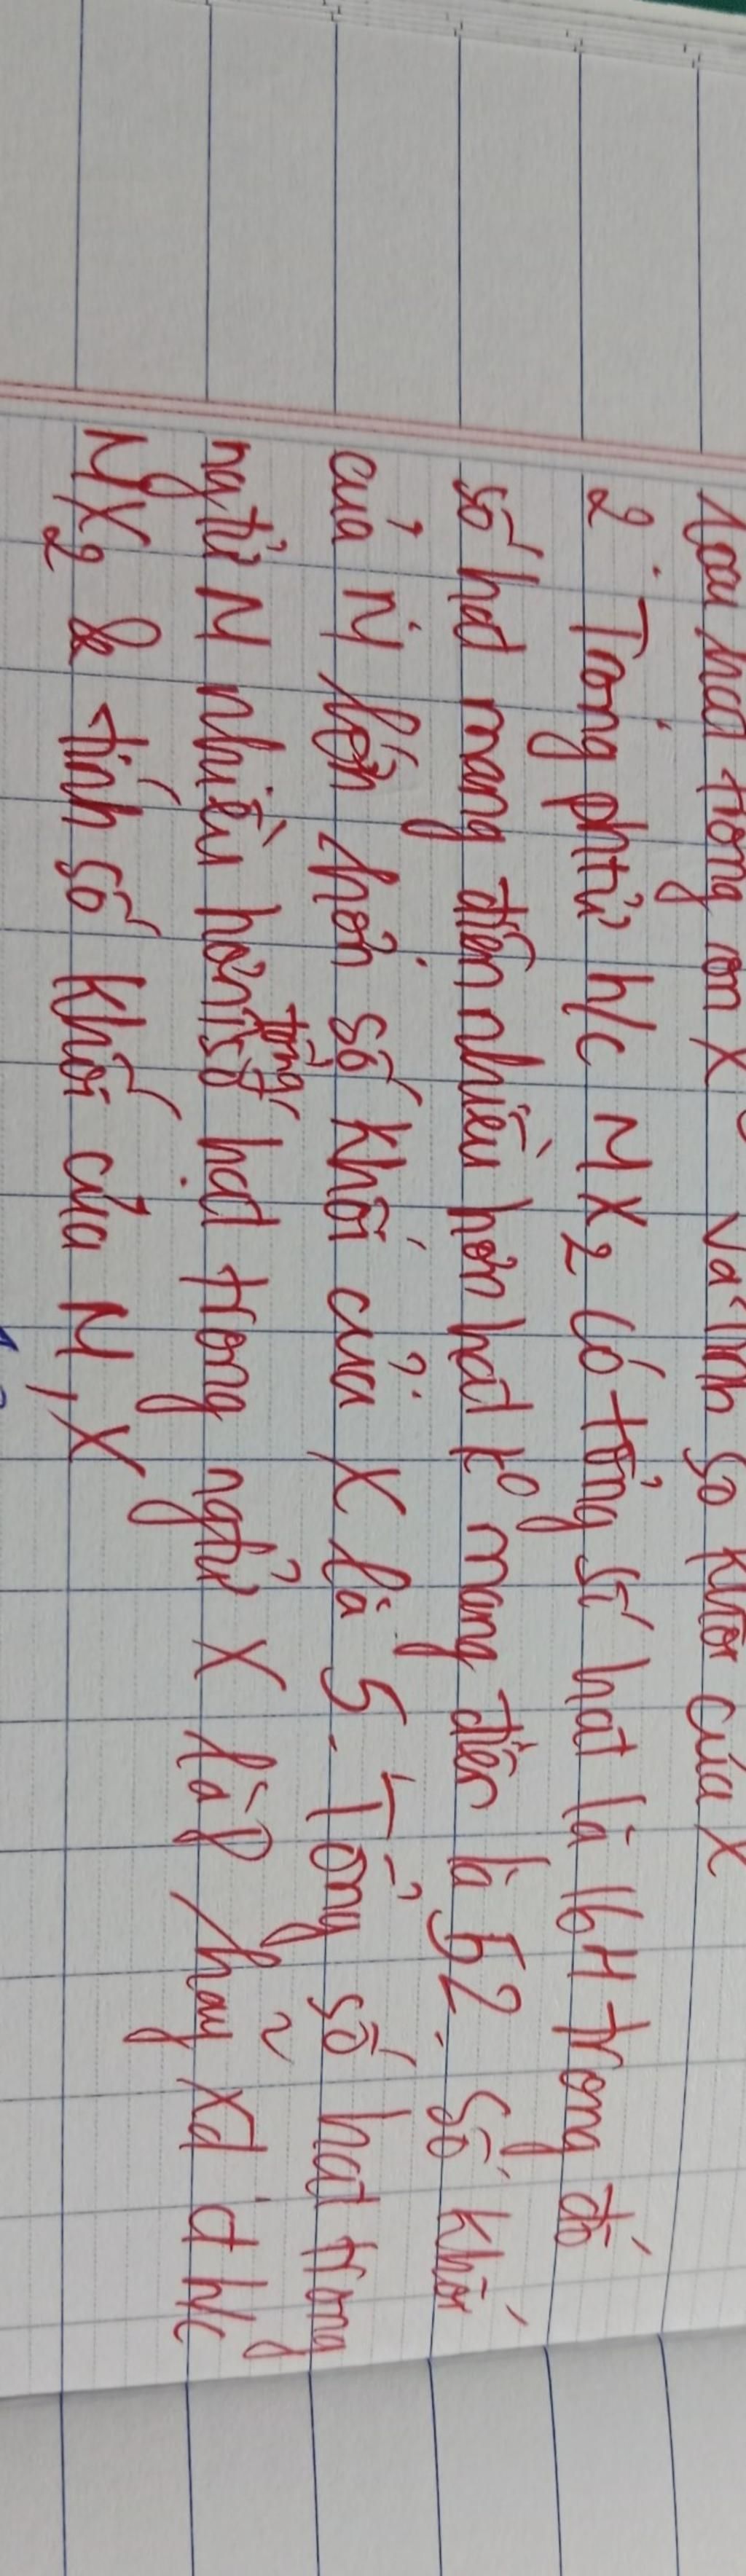 loại hạt trong ion X và tính số khối của X
2. Trong phtử h/c MX2 có tổng số hạt là 164 trong đó
số hạt mang điện nhiều hơn hạt k° mang điện là 52. Số khối
của M lớn hơn số khối của X là 5. Tổng số hạt trong
ngtử M nhiều hơn tổng số hạt trong ngtử X là 8 hãy xđ ct h/c
MX2 & tính số khối của M, X